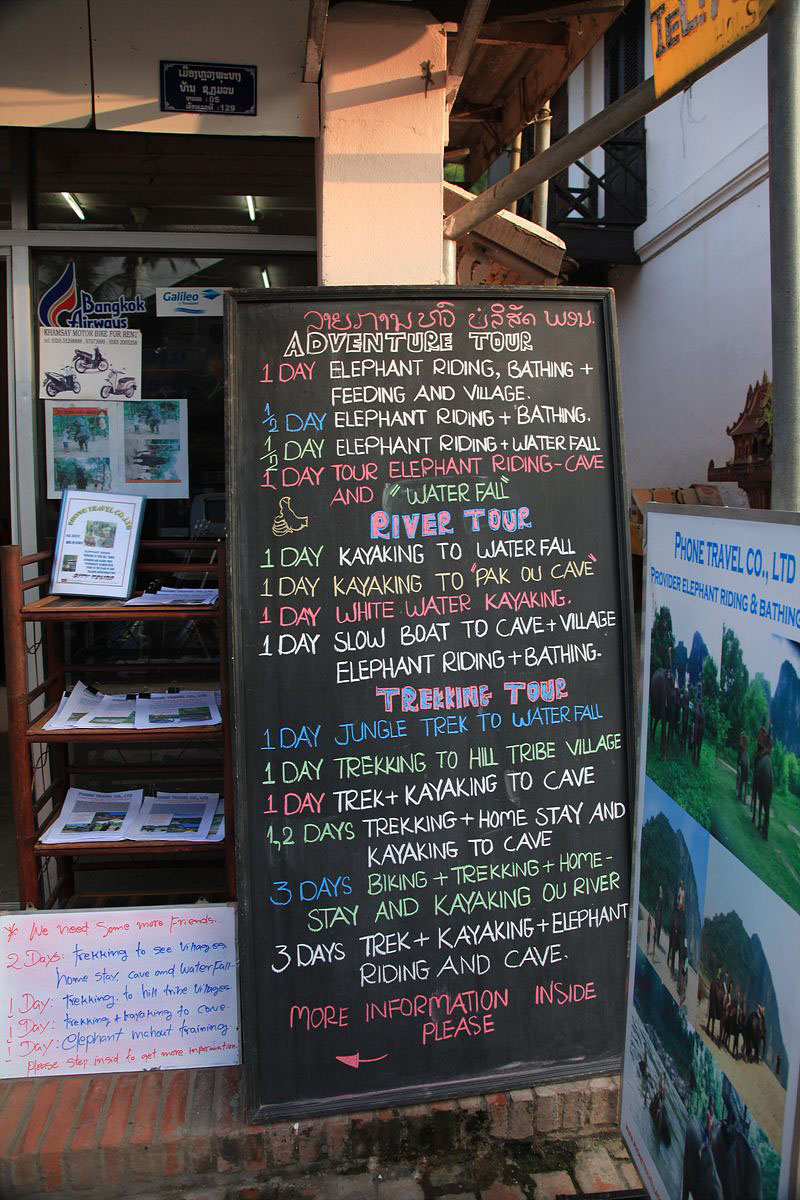 ເມືອງຫຼວງພະບາງ
ບ້ານ
: 05
: 129
TEL:
Bangkok
Airways
Galileo
KHAMSAY MOTOR BIKE FOR RENT
PHONE TRAVEL CO., LTD
CITY TOURS
ADVENTURE TOUR
1 DAY ELEPHANT RIDING, BATHING +
FEEDING AND VILLAGE.
1/2 DAY ELEPHANT RIDING + BATHING.
1/2 DAY ELEPHANT RIDING + WATER FALL
1 DAY TOUR ELEPHANT RIDING - CAVE
AND "WATER FALL"
RIVER TOUR
1 DAY KAYAKING TO WATER FALL
1 DAY KAYAKING TO "PAK OU CAVE"
1 DAY WHITE WATER KAYAKING.
1 DAY SLOW BOAT TO CAVE + VILLAGE
ELEPHANT RIDING + BATHING-
TREKKING TOUR
1 DAY JUNGLE TREK TO WATER FALL
1 DAY TREKKING TO HILL TRIBE VILLAGE
1 DAY TREK + KAYAKING TO CAVE
1,2 DAYS TREKKING + HOME STAY AND
KAYAKING TO CAVE
3 DAYS BIKING + TREKKING + HOME-
STAY AND KAYAKING OU RIVER
3 DAYS TREK + KAYAKING + ELEPHANT
RIDING AND CAVE.
MORE INFORMATION INSIDE
PLEASE
PHONE TRAVEL CO., LTD
PROVIDER ELEPHANT RIDING & BATHING
* We need Some more Friends.
2 Days: trekking to see villages
home stay, cave and WaterFall-
1 Day: trekking to hill tribe villages
1 Day: trekking + kayaking to cave.
1 Day: elephant mahout training.
please step insid to get more information.